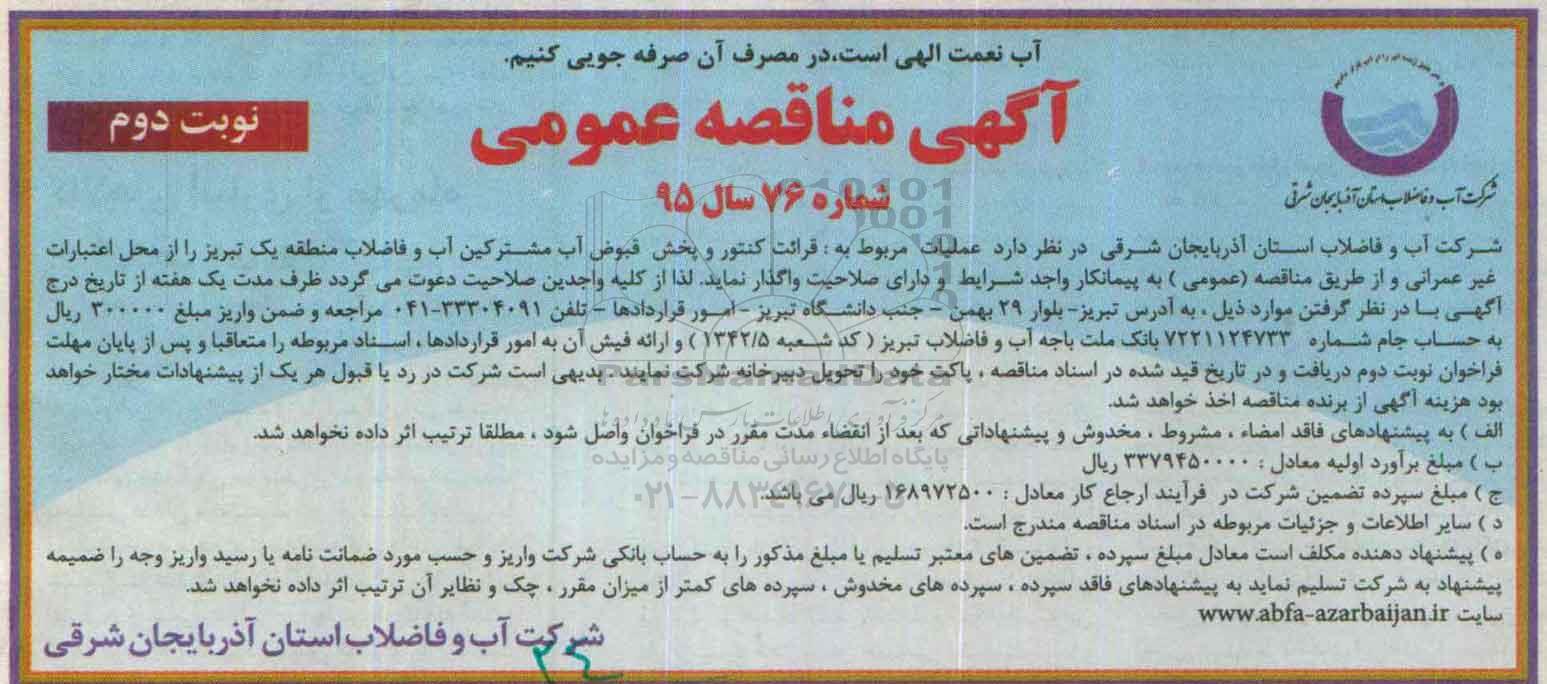 آب نعمت الهی است،در مصرف آن صرفه جویی کنیم.
آگهی مناقصه عمومی
نوبت دوم
شماره ۷۶ سال ۹۵
شرکت آب و فاضلاب استان آذربایجان شرقی
شرکت آب و فاضلاب استان آذربایجان شرقی در نظر دارد عملیات مربوط به : قرائت کنتور و پخش قبوض آب مشترکین آب و فاضلاب منطقه یک تبریز را از محل اعتبارات
غیر عمرانی و از طریق مناقصه (عمومی ) به پیمانکار واجد شرایط و دارای صلاحیت واگذار نماید. لذا از کلیه واجدین صلاحیت دعوت می گردد ظرف مدت یک هفته از تاریخ درج
آگهی با در نظر گرفتن موارد ذیل ، به آدرس تبریز- بلوار ۲۹ بهمن – جنب دانشگاه تبریز - امور قراردادها – تلفن ۳۳۳۰۴۰۹۱-۰۴۱ مراجعه و ضمن واریز مبلغ ۳۰۰۰۰۰ ریال
به حساب جام شماره ۷۲۲۱۱۲۴۷۳۳ بانک ملت باجه آب و فاضلاب تبریز ( کد شعبه ۱۳۴۲/۵ ) و ارائه فیش آن به امور قراردادها ، اسناد مربوطه را متعاقبا و پس از پایان مهلت
فراخوان نوبت دوم دریافت و در تاریخ قید شده در اسناد مناقصه ، پاکت خود را تحویل دبیرخانه شرکت نمایند . بدیهی است شرکت در رد یا قبول هر یک از پیشنهادات مختار خواهد
بود هزینه آگهی از برنده مناقصه اخذ خواهد شد.
الف ) به پیشنهادهای فاقد امضاء ، مشروط ، مخدوش و پیشنهاداتی که بعد از انقضاء مدت مقرر در فراخوان واصل شود ، مطلقا ترتیب اثر داده نخواهد شد.
ب ) مبلغ برآورد اولیه معادل : ۳۳۷۹۴۵۰۰۰۰ ریال
ج ) مبلغ سپرده تضمین شرکت در فرآیند ارجاع کار معادل : ۱۶۸۹۷۲۵۰۰ ریال می باشد.
د ) سایر اطلاعات و جزئیات مربوطه در اسناد مناقصه مندرج است.
ه ) پیشنهاد دهنده مکلف است معادل مبلغ سپرده ، تضمین های معتبر تسلیم یا مبلغ مذکور را به حساب بانکی شرکت واریز و حسب مورد ضمانت نامه یا رسید واریز وجه را ضمیمه
پیشنهاد به شرکت تسلیم نماید به پیشنهادهای فاقد سپرده ، سپرده های مخدوش ، سپرده های کمتر از میزان مقرر ، چک و نظایر آن ترتیب اثر داده نخواهد شد.
سایت www.abfa-azarbaijan.ir
شرکت آب و فاضلاب استان آذربایجان شرقی
ParsNamadData
مرکز فرآوری اطلاعات پارس نماد داده‌ها
پایگاه اطلاع رسانی مناقصه و مزایده